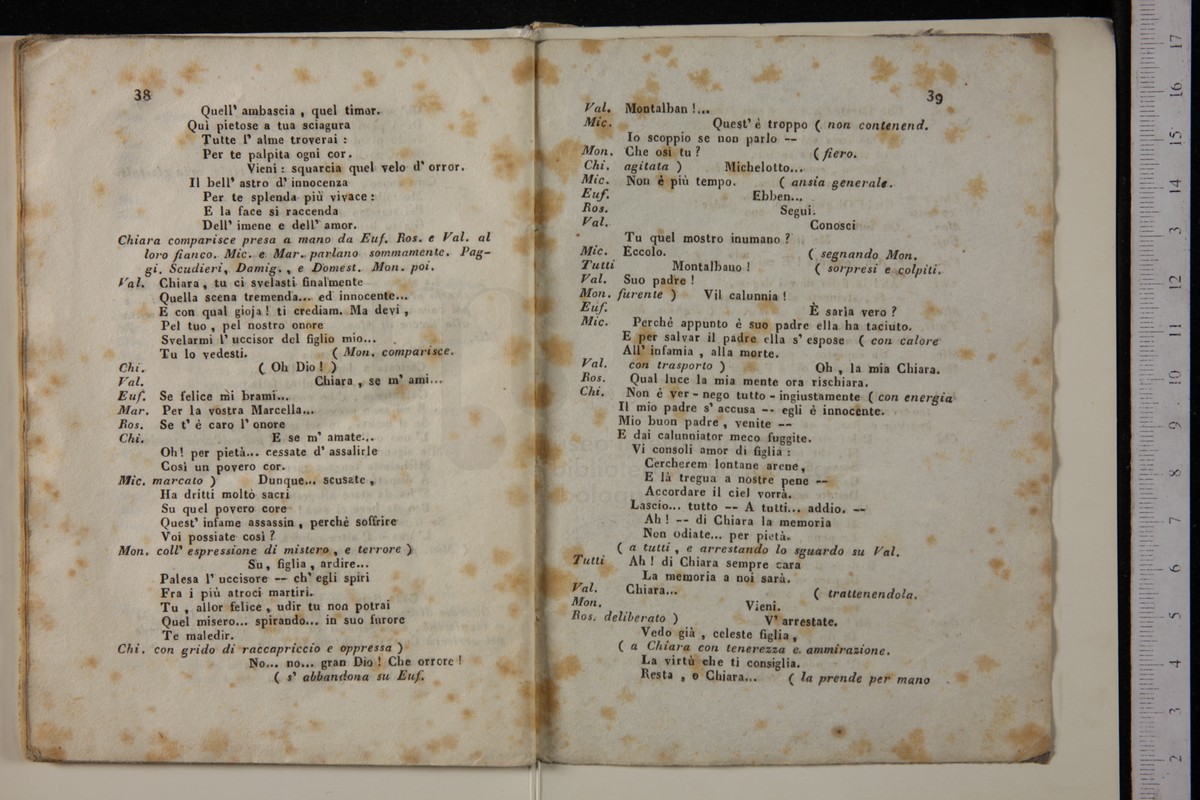 38
Quell' ambascia , quel timor.
Qui pietose a tua sciagura
Tutte l' alme troverai :
Per te palpita ogni cor.
Vieni : squarcia quel velo d' orror.
Il bell' astro d' innocenza
Per te splenda più vivace :
E la face si raccenda
Dell' imene e dell' amor.
Chiara comparisce presa a mano da Euf. Ros. e Val. al
loro fianco. Mic. e Mar. parlano sommamente. Pag-
gi. Scudieri, Damig. , e Domest. Mon. poi.
Val. Chiara , tu ci svelasti finalmente
Quella scena tremenda... ed innocente...
E con qual gioja ! ti crediam. Ma devi ,
Pel tuo , pel nostro onore
Svelarmi l' uccisor del figlio mio...
Tu lo vedesti. ( Mon. comparisce.
Chi. ( Oh Dio ! )
Val. Chiara , se m' ami...
Euf. Se felice mi brami...
Mar. Per la vostra Marcella...
Ros. Se t' è caro l' onore
Chi. E se m' amate...
Oh! per pietà... cessate d' assalirle
Così un povero cor.
Mic. marcato ) Dunque... scusate ,
Ha dritti molto sacri
Su quel povero core
Quest' infame assassin , perchè soffrire
Voi possiate così ?
Mon. coll' espressione di mistero , e terrore )
Su, figlia , ardire...
Palesa l' uccisore -- ch' egli spiri
Fra i più atroci martiri.
Tu , allor felice , udir tu non potrai
Quel misero... spirando... in suo furore
Te maledir.
Chi. con grido di raccapriccio e oppressa )
No... no... gran Dio ! Che orrore !
( s' abbandona su Euf.
39
Val. Montalban !...
Mic. Quest' è troppo ( non contenend.
Io scoppio se non parlo --
Mon. Che osi tu ? ( fiero.
Chi. agitata ) Michelotto...
Mic. Non è più tempo. ( ansia generale.
Euf. Ebben...
Ros. Segui.
Val. Conosci
Tu quel mostro inumano ?
Mic. Eccolo. ( segnando Mon.
Tutti Montalbano ! ( sorpresi e colpiti.
Val. Suo padre !
Mon. furente ) Vil calunnia !
Euf. È saria vero ?
Mic. Perchè appunto è suo padre ella ha taciuto.
E per salvar il padre ella s' espose ( con calore
All' infamia , alla morte.
Val. con trasporto ) Oh , la mia Chiara.
Ros. Qual luce la mia mente ora rischiara.
Chi. Non è ver - nego tutto - ingiustamente ( con energia
Il mio padre s' accusa -- egli è innocente.
Mio buon padre , venite --
E dai calunniator meco fuggite.
Vi consoli amor di figlia :
Cercherem lontane arene,
E là tregua a nostre pene --
Accordare il ciel vorrà.
Lascio... tutto -- A tutti... addio. --
Ah ! -- di Chiara la memoria
Non odiate... per pietà.
( a tutti , e arrestando lo sguardo su Val.
Tutti Ah ! di Chiara sempre cara
La memoria a noi sarà.
Val. Chiara... ( trattenendola.
Mon. Vieni.
Ros. deliberato ) V' arrestate.
Vedo già , celeste figlia ,
( a Chiara con tenerezza e ammirazione.
La virtù che ti consiglia.
Resta , o Chiara... ( la prende per mano